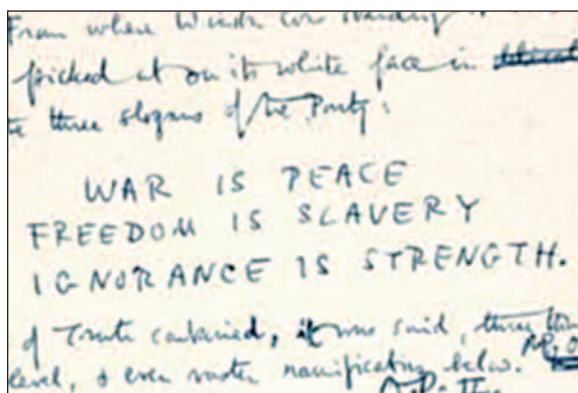 From where Winston stood
picked out on its white face in
the three slogans of the Party:
WAR IS PEACE
FREEDOM IS SLAVERY
IGNORANCE IS STRENGTH.
of Truth contained, it was said, three thou
level, & even vaster ramifications below.